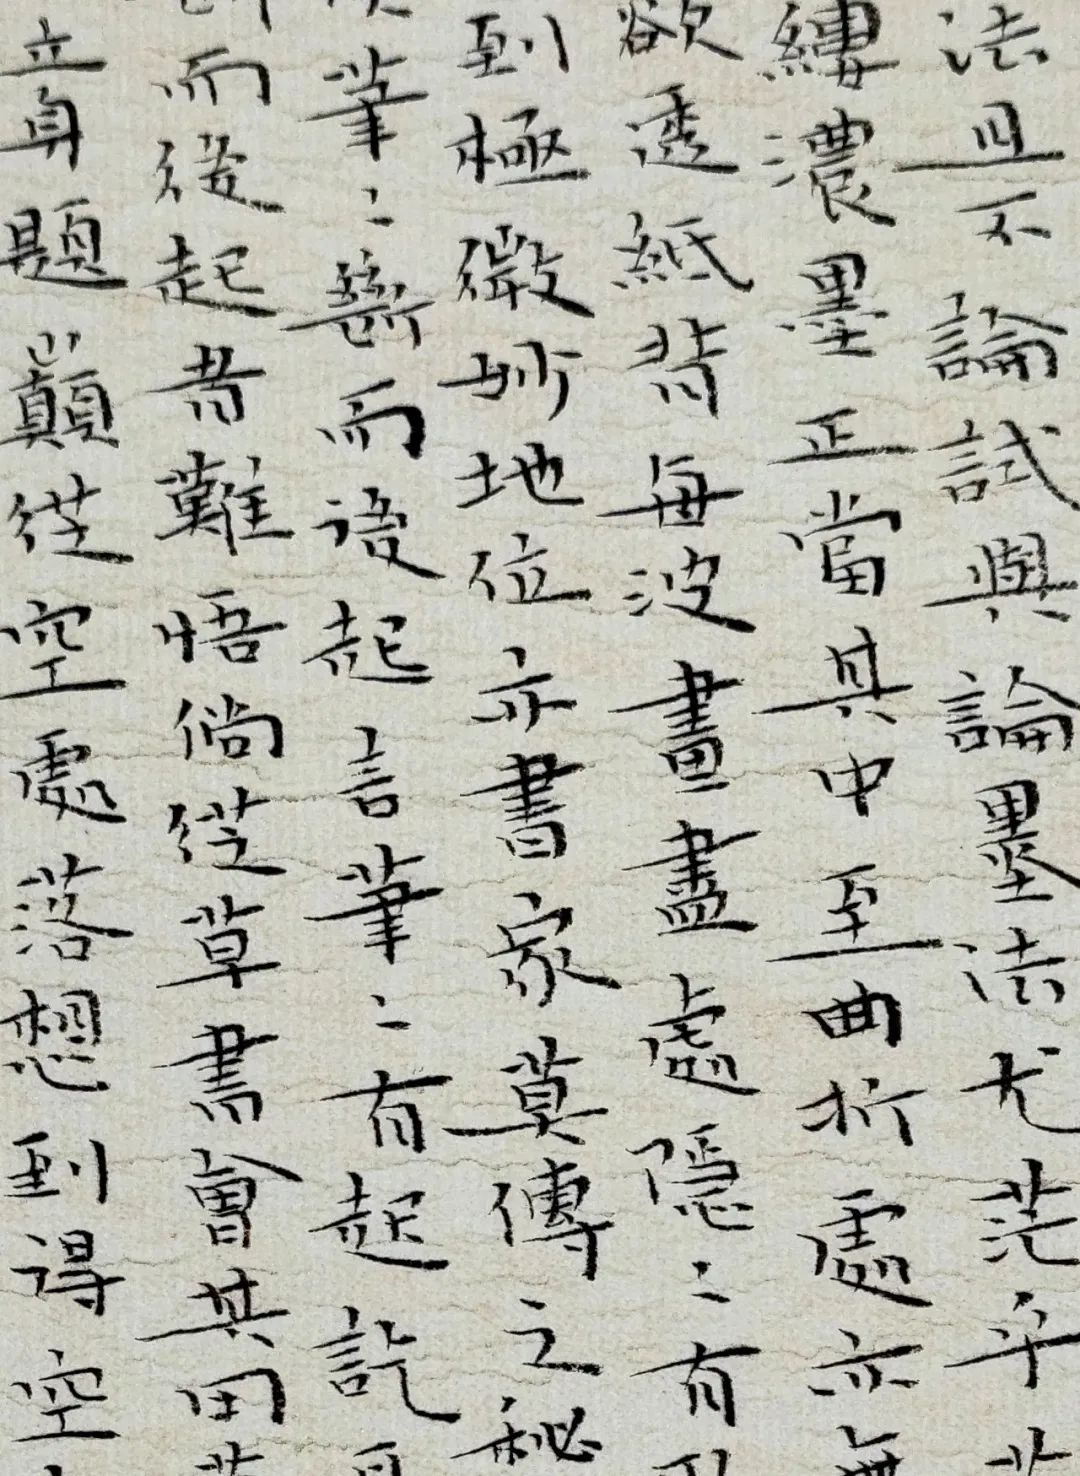 法且不論試與論墨法尤茫乎
縷濃墨正當其中至曲折處亦無
欲透紙背每波畫盡處隱〻有
到極微妙地位亦書家莫傳之秘
筆〻斷而後起言筆〻有起訖
而後起者難悟倘從草書會其用
章題巔從空處落想到得空